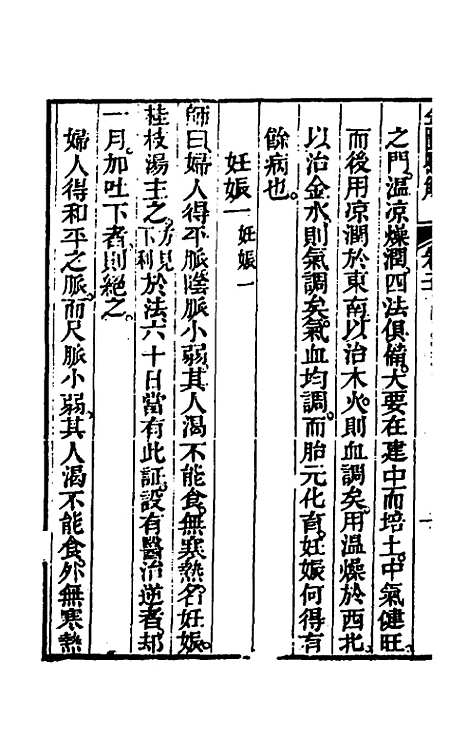 之門溫涼燥潤四法俱備大要在建中而培土中氣健旺
而後用涼潤於東南以治木火則血調矣用溫燥於西北
以治金水則氣調矣氣血均調而胎元化育妊娠何得有
餘病也
妊娠一 妊娠一
師曰婦人得平脈陰脈小弱其人渴不能食無寒熱名妊娠
桂枝湯主之方見下利於法六十日當有此証設有醫治逆者却
一月加吐下者則絕之
婦人得和平之脈而尺脈小弱其人渴不能食外無寒熱